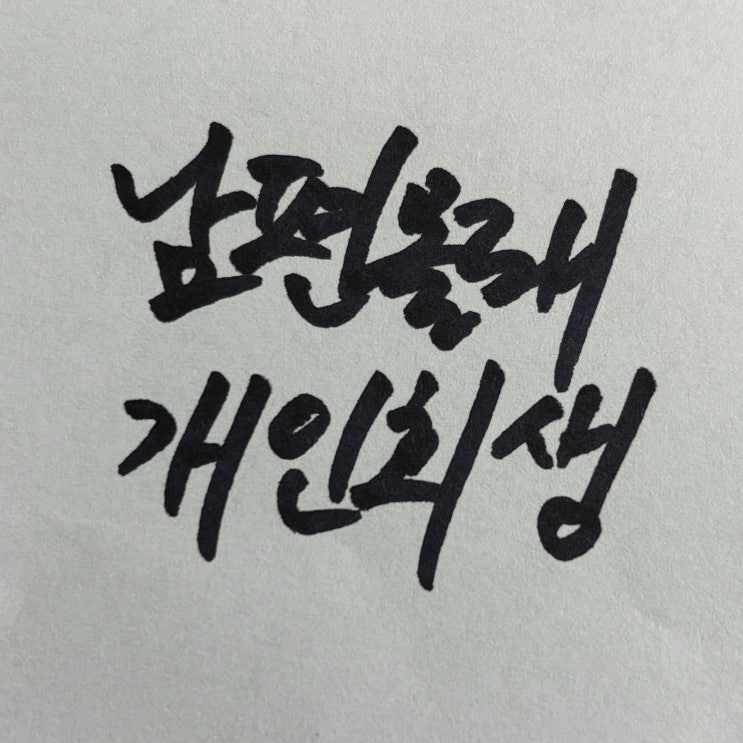 남편몰래
개인회생